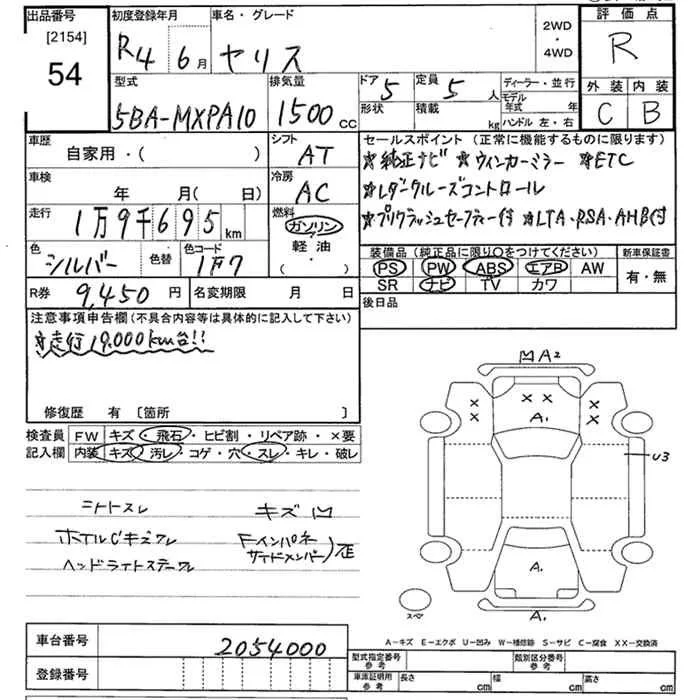 出品番号
[2154]
54
初度登録年月
R4 6月
車名・グレード
ヤリス
2WD
・
4WD
評価点
R
外装 内装
C B
型式
5BA-MXPA10
排気量
1500cc
ドア 5
形状
定員 5人
積載 kg
ディーラー・並行
モデル年式 年
ハンドル 左・右
車歴
自家用・( )
シフト
AT
車検
年 月(日)
冷房
AC
走行
1万9千695km
燃料
ガソリン
軽油
( ・ )
色
シルバー
色替
色コード
1F7
R券 9,450円
名変期限 月 日
セールスポイント(正常に機能するものに限ります)
☆純正ナビ ☆ウィンカーミラー ☆ETC
☆レダークルーズコントロール
☆プリクラッシュセーフティー付 ☆LTA・RSA・AHB付
装備品(純正品に限り○をつけてください)
PS PW ABS エアB AW
SR ナビ TV カワ
新車保証書
有・無
後日品
注意事項申告欄(不具合内容等は具体的に記入して下さい)
☆走行19,000km台!!
修復歴 有 [箇所 ]
検査員記入欄
FW キズ・飛石・ヒビ割・リペア跡・×要
内装 キズ・汚レ・コゲ・穴・スレ・キレ・破レ
シートスレ
ホイルCキズワレ
ヘッドライトステーワレ
キズ凹
Fインパネ
サイドメンバー)歪
凹A2
× ×
× ×
A.
U3
A.
スペア
A.
A-キズ E-エクボ U-凹み W-補修跡 S-サビ C-腐食 XX-交換済
車台番号 2054000
登録番号
型式指定番号 参考
類別区分番号 参考
車庫証明用 参考
長さ cm 幅 cm 高さ cm